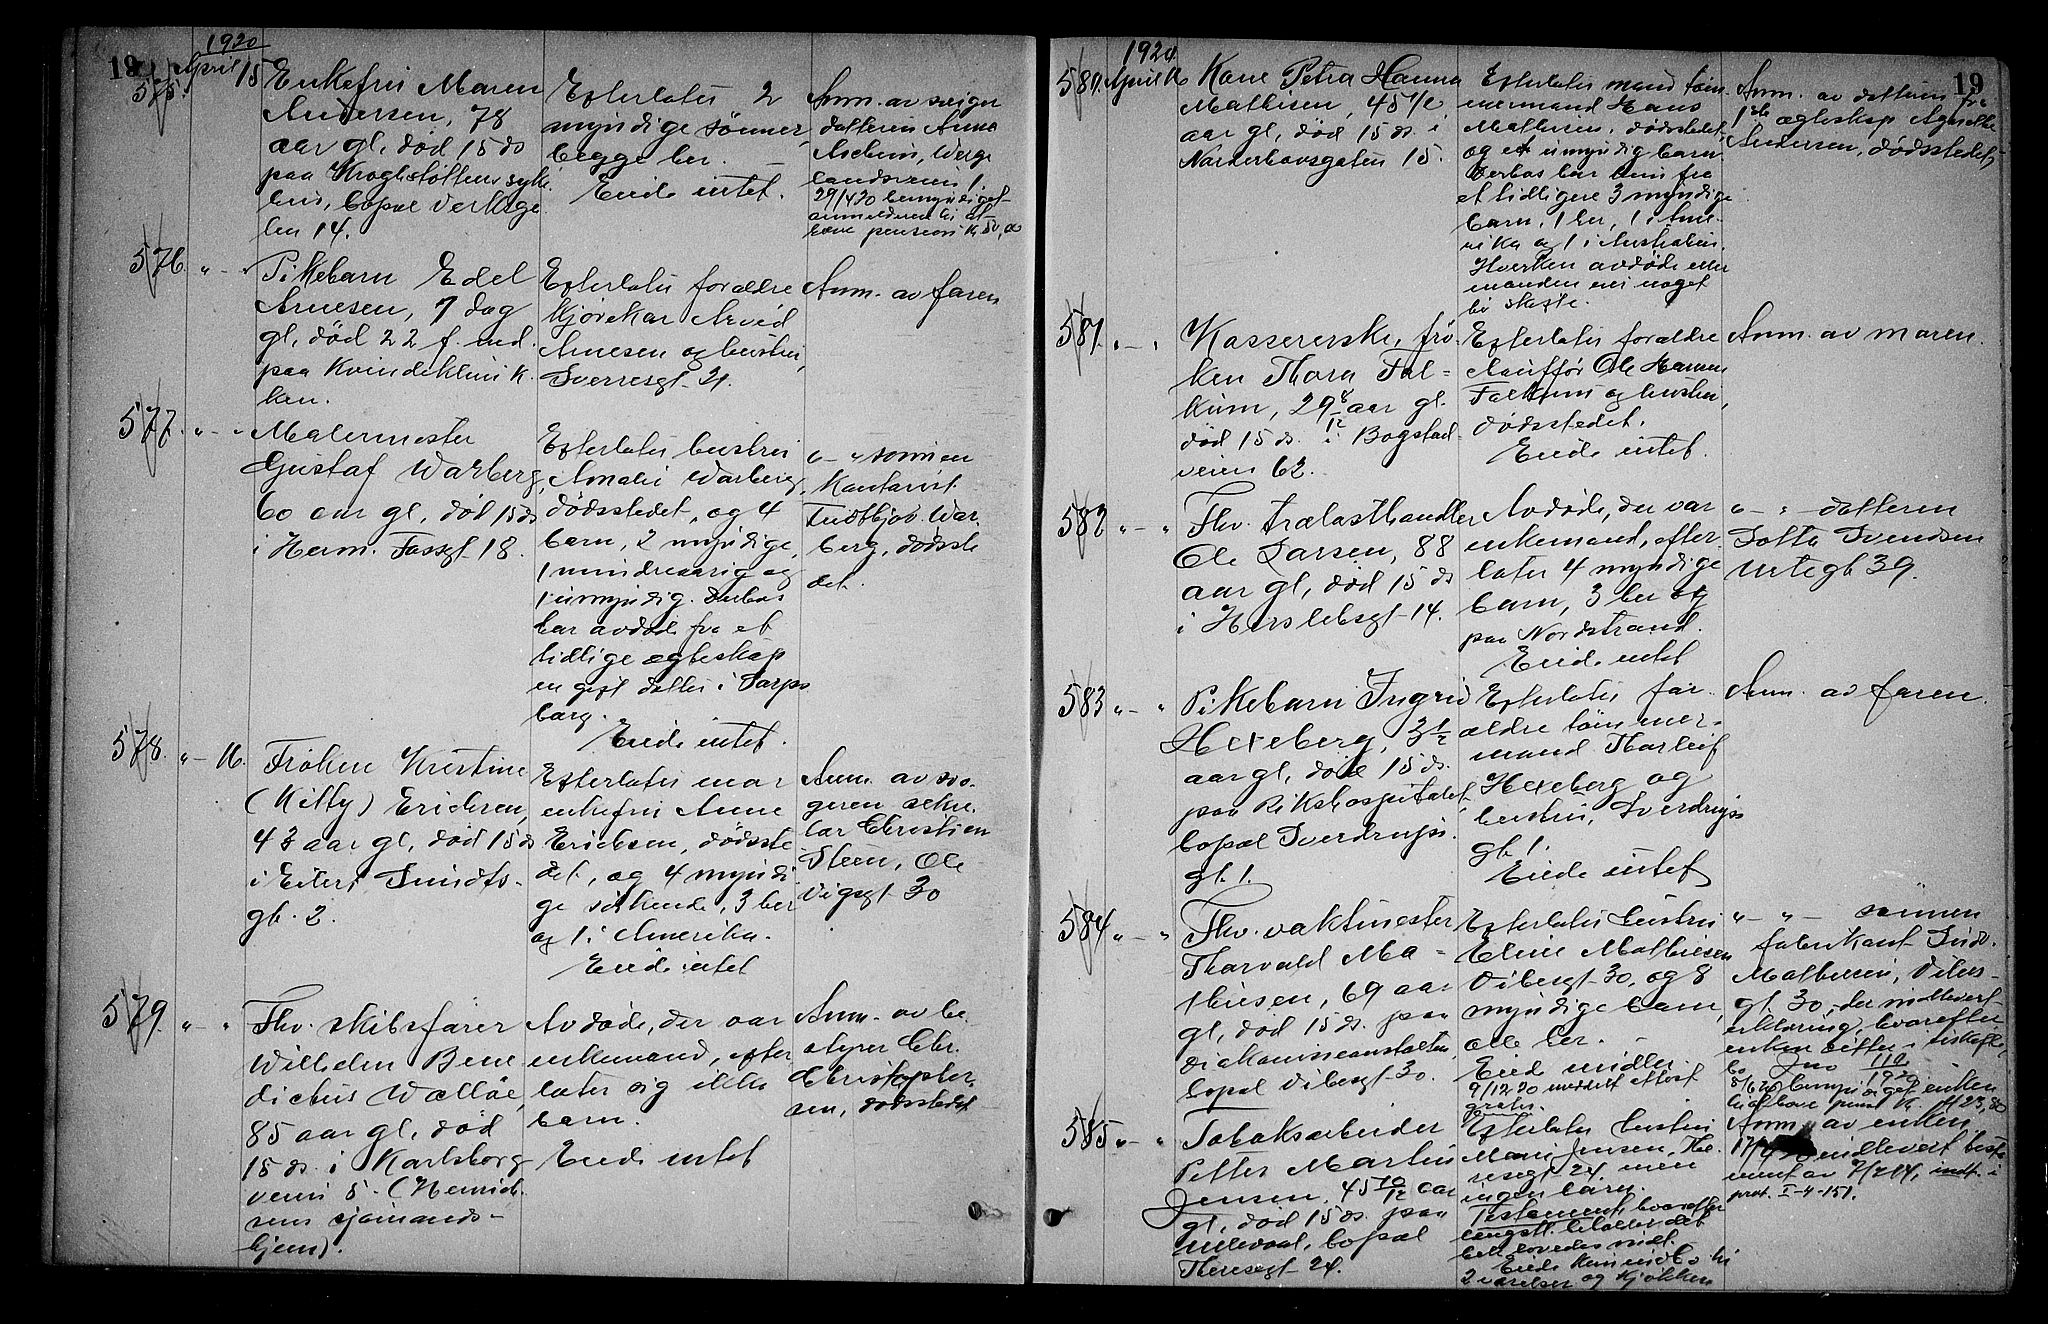 19
1920
575. April 15
Enkefru Maren
Andersen, 78
aar gl, død 15 ds
paa Kroghstøttens syke
hus, bopæl Verksge
ten 14.
Efterlater 2
myndige sønner,
begge her.
Eiede intet.
Anm. av sviger
datteren Anna
Aschim, Werge
landsveien 1.
29/4 20 bemyndiget
anmelderen til at
hæve pension
576. " - "
Pikebarn Edel
Arnesen, 7 dag
gl, død 22 f. md.
paa Kvindeklinik
ken.
Efterlater forældre
kjørekar Arvid
Arnesen og hustru,
Sverresgt 21.
Anm. av faren
577. " - "
Malermester
Gustaf Warberg,
60 aar gl, død 15 ds
i Herm. Fossgt 18.
Efterlater hustru
Amalie Warberg,
dødsstedet, og 4
barn, 2 myndige,
1 mindreaarig og
1 umyndig. Derhos
har avdøde fra et
tidlige ægteskap
en gift datter i Sarps
borg.
Eiede intet.
" - " sønnen
kontorist
Fridthjov War
berg, dødsste
det.
578. " - 16.
Frøken Kristine
(Kitty) Erichsen,
43 aar gl, død 15 ds
i Eilert Sundts
gt. 2.
Efterlater mor
enkefru Anne
Erichsen, dødsste
det, og 4 myndi
ge søskende, 3 her
og 1 i Amerika.
Eiede intet
Anm. av svo
geren sekre
tær Christian
Steen, Ole
Vigsgt 30
579. " - "
Fhv. skibsfører
Wilhelm Bene
dictus Walløe,
85 aar gl, død
15 ds. i Karlsborg
veien 5. (Henrich
sens sjømands-
hjem).
Avdøde, der var
enkemand, efter
later sig ikke
barn.
Eiede intet
Anm. av be
styrer Chr.
Christopher
sen, dødsstedet
19
1920
580. April 16
Kone Petra Hanna
Mathisen, 45 1/2
aar gl, død 15 ds. i
Norderhovsgaten 15.
Efterlater mand tøm
mermand Hans
Mathisen, dødsstedet
og et umyndig barn
Derhos har hun fra
et tidligere 3 myndige
barn, 1 her, 1 i Ame
rika og 1 i Australien.
Hverken avdøde eller
manden eier noget
til skifte.
Anm. av datteren fra
1ste ægteskap
Andersen, dødsstedet,
581. " - "
Kassererske, frø
ken Thora Fal-
kum, 29 8/12 aar gl.
død 15 ds. i Bogstad
veien 62.
Efterlater forældre
chauffør Ole Hansen
Falkum og hustru,
dødsstedet.
Eiede intet.
Anm. av moren.
582 " - "
Fhv. trælasthandler
Ole Larsen, 88
aar gl, død 15 ds
i Herslebsgt 14.
Avdøde, der var
enkemand, efter
later 4 myndige
barn, 3 her og
paa Nordstrand.
Eiede intet
" - " - datteren
Lotte Svendsen
Urtegt 39.
583 " - "
Pikebarn Ingrid
Hexeberg, 3 1/2
aar gl, død 15 ds.
paa Rikshospitalet,
bopæl Sverdrups
gt. 1.
Efterlater for
ældre tømmer-
mand Thorleif
Hexeberg og
hustru, Sverdrups
gt. 1.
Eiede intet
Anm. av faren.
584 " - "
Fhv. vaktmester
Thorvald Ma-
thisen, 69 aar
gl, død 15 ds. paa
Diakonisseanstalten,
bopæl Vibesgt 30.
Efterlater hustru
Eline Mathisen
Vibesgt 30, og 8
myndige barn,
alle her.
Eiede midler
9/12 20 meddelt attest
gratis.
" - " - sønnen
fabrikant
Mathisen, Vibes-
gt. 30, der indleverte
erklæring, hvorefter
enken sitter i uskiftet
bo Jno 110/1920
8/6 20 bemyndiget enken
til at hæve pens. Kr 423,80
585 " - "
Tobaksarbeider
Petter Martin
Jensen, 45 10/12 aar
gl, død 15 ds. paa
Ullevaal, bopæl
Theresegt 24.
Efterlater hustru
Marie Jensen, The
resegt 24. men
ingen barn.
Testament, hvorefter
længstl. beholder det
hele lovedes indl.
Eiede kun indbo til
2 værelser og kjøkken
Anm. av enken
indlevert testa
ment av 7/7 14, indt. i
prot. I-4-151.